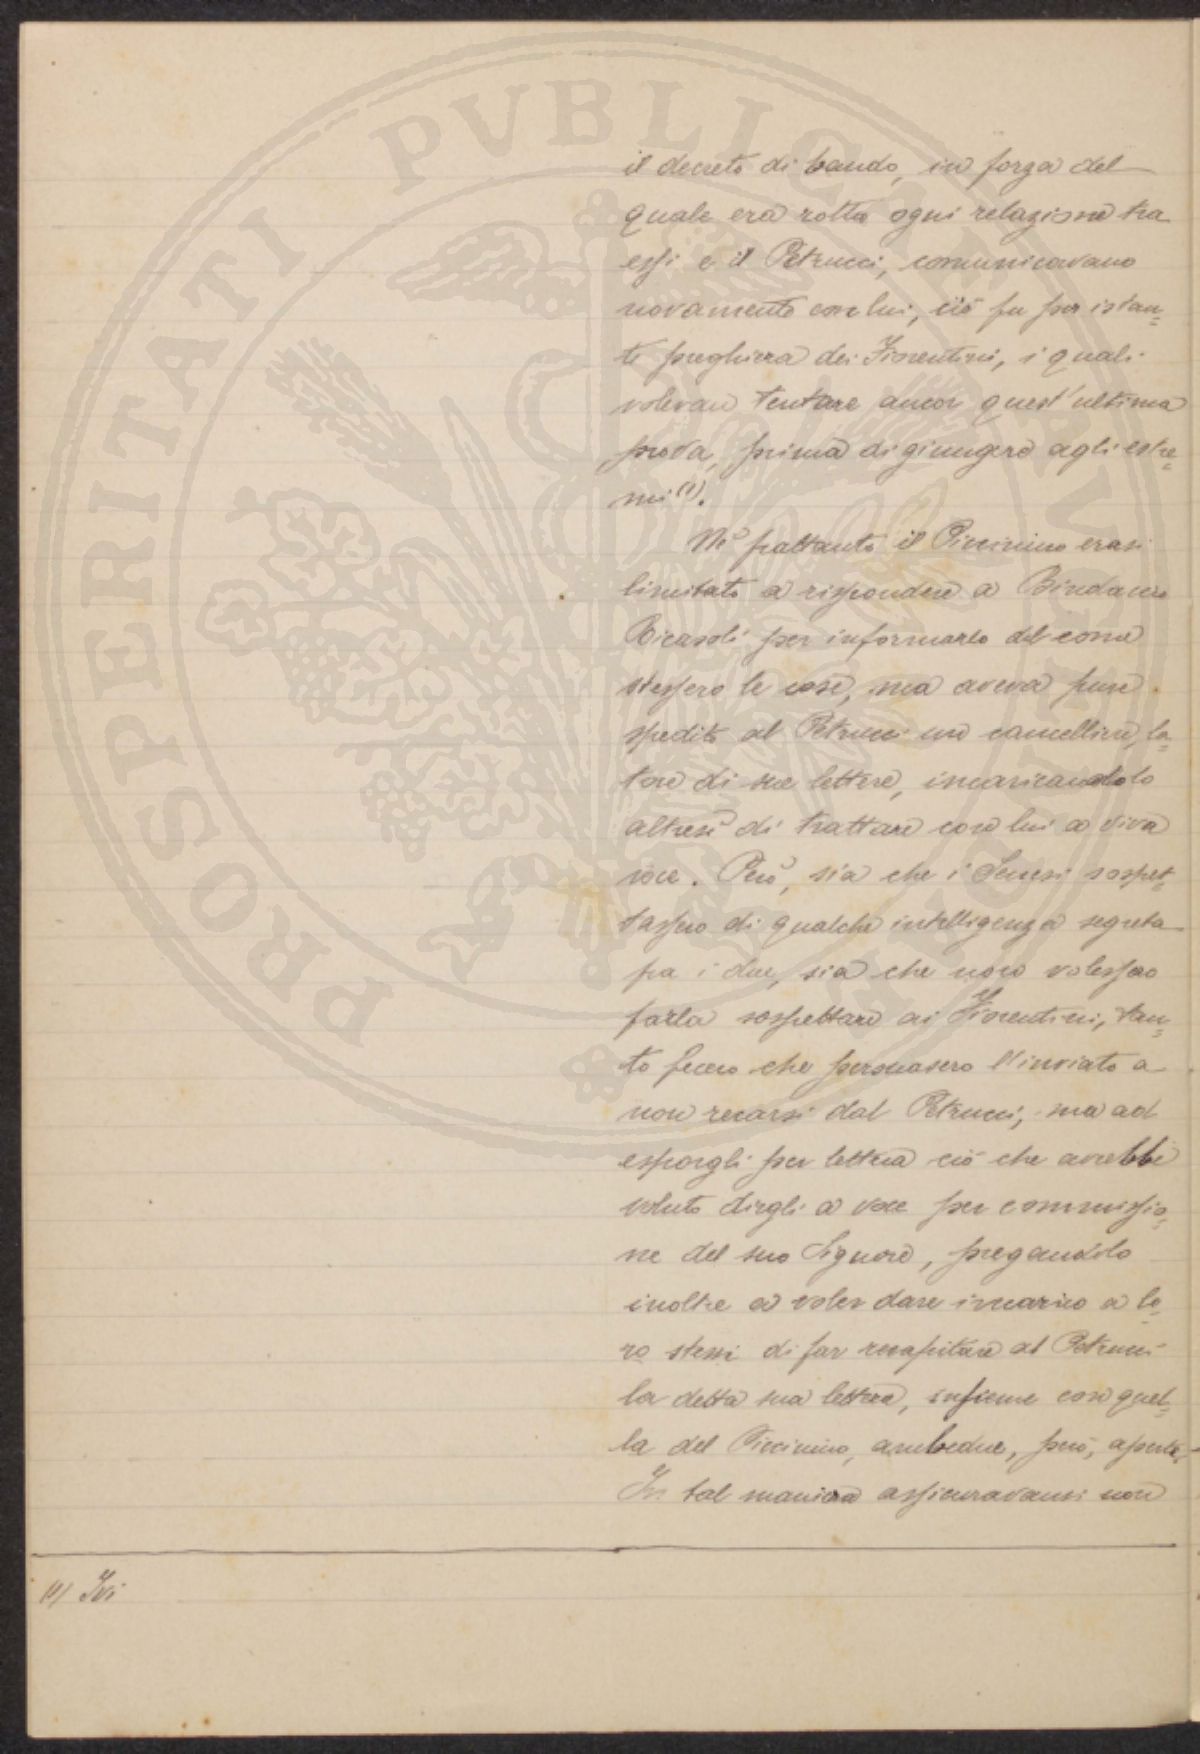 PROSPERITATI PVBLICAE AVGENDAE
il decreto di bando, in forza del
quale era rotta ogni relazione tra
essi e il Petrucci, comunicavano
novamente con lui, ciò fu per istan=
te preghiera dei Fiorentini, i quali
volevan tentare ancor quest'ultima
prova, prima di giungere agli estre=
mi (1).
Nè frattanto il Piccinino erasi
limitato a rispondere a Bindaccio
Ricasoli per informarlo del come
stessero le cose, ma aveva pure
spedito al Petrucci un cancelliere, la=
tore di sue lettere, incaricandolo
altresì di trattare con lui a viva
voce. Però, sia che i Senesi sospet=
tassero di qualche intelligenza segreta
fra i due, sia che non volessero
farla sospettare ai Fiorentini, tan=
to fecero che persuasero l'inviato a
non recarsi dal Petrucci, ma ad
esporgli per lettera ciò che avrebbe
voluto dirgli a voce per commissio=
ne del suo Signore, pregandolo
inoltre a voler dare incarico a lo=
ro stessi di far recapitare al Petrucci
la detta sua lettera, insieme con quel=
la del Piccinino, ambedue, però, aperte.
In tal maniera assicuravansi non
(1) Ivi